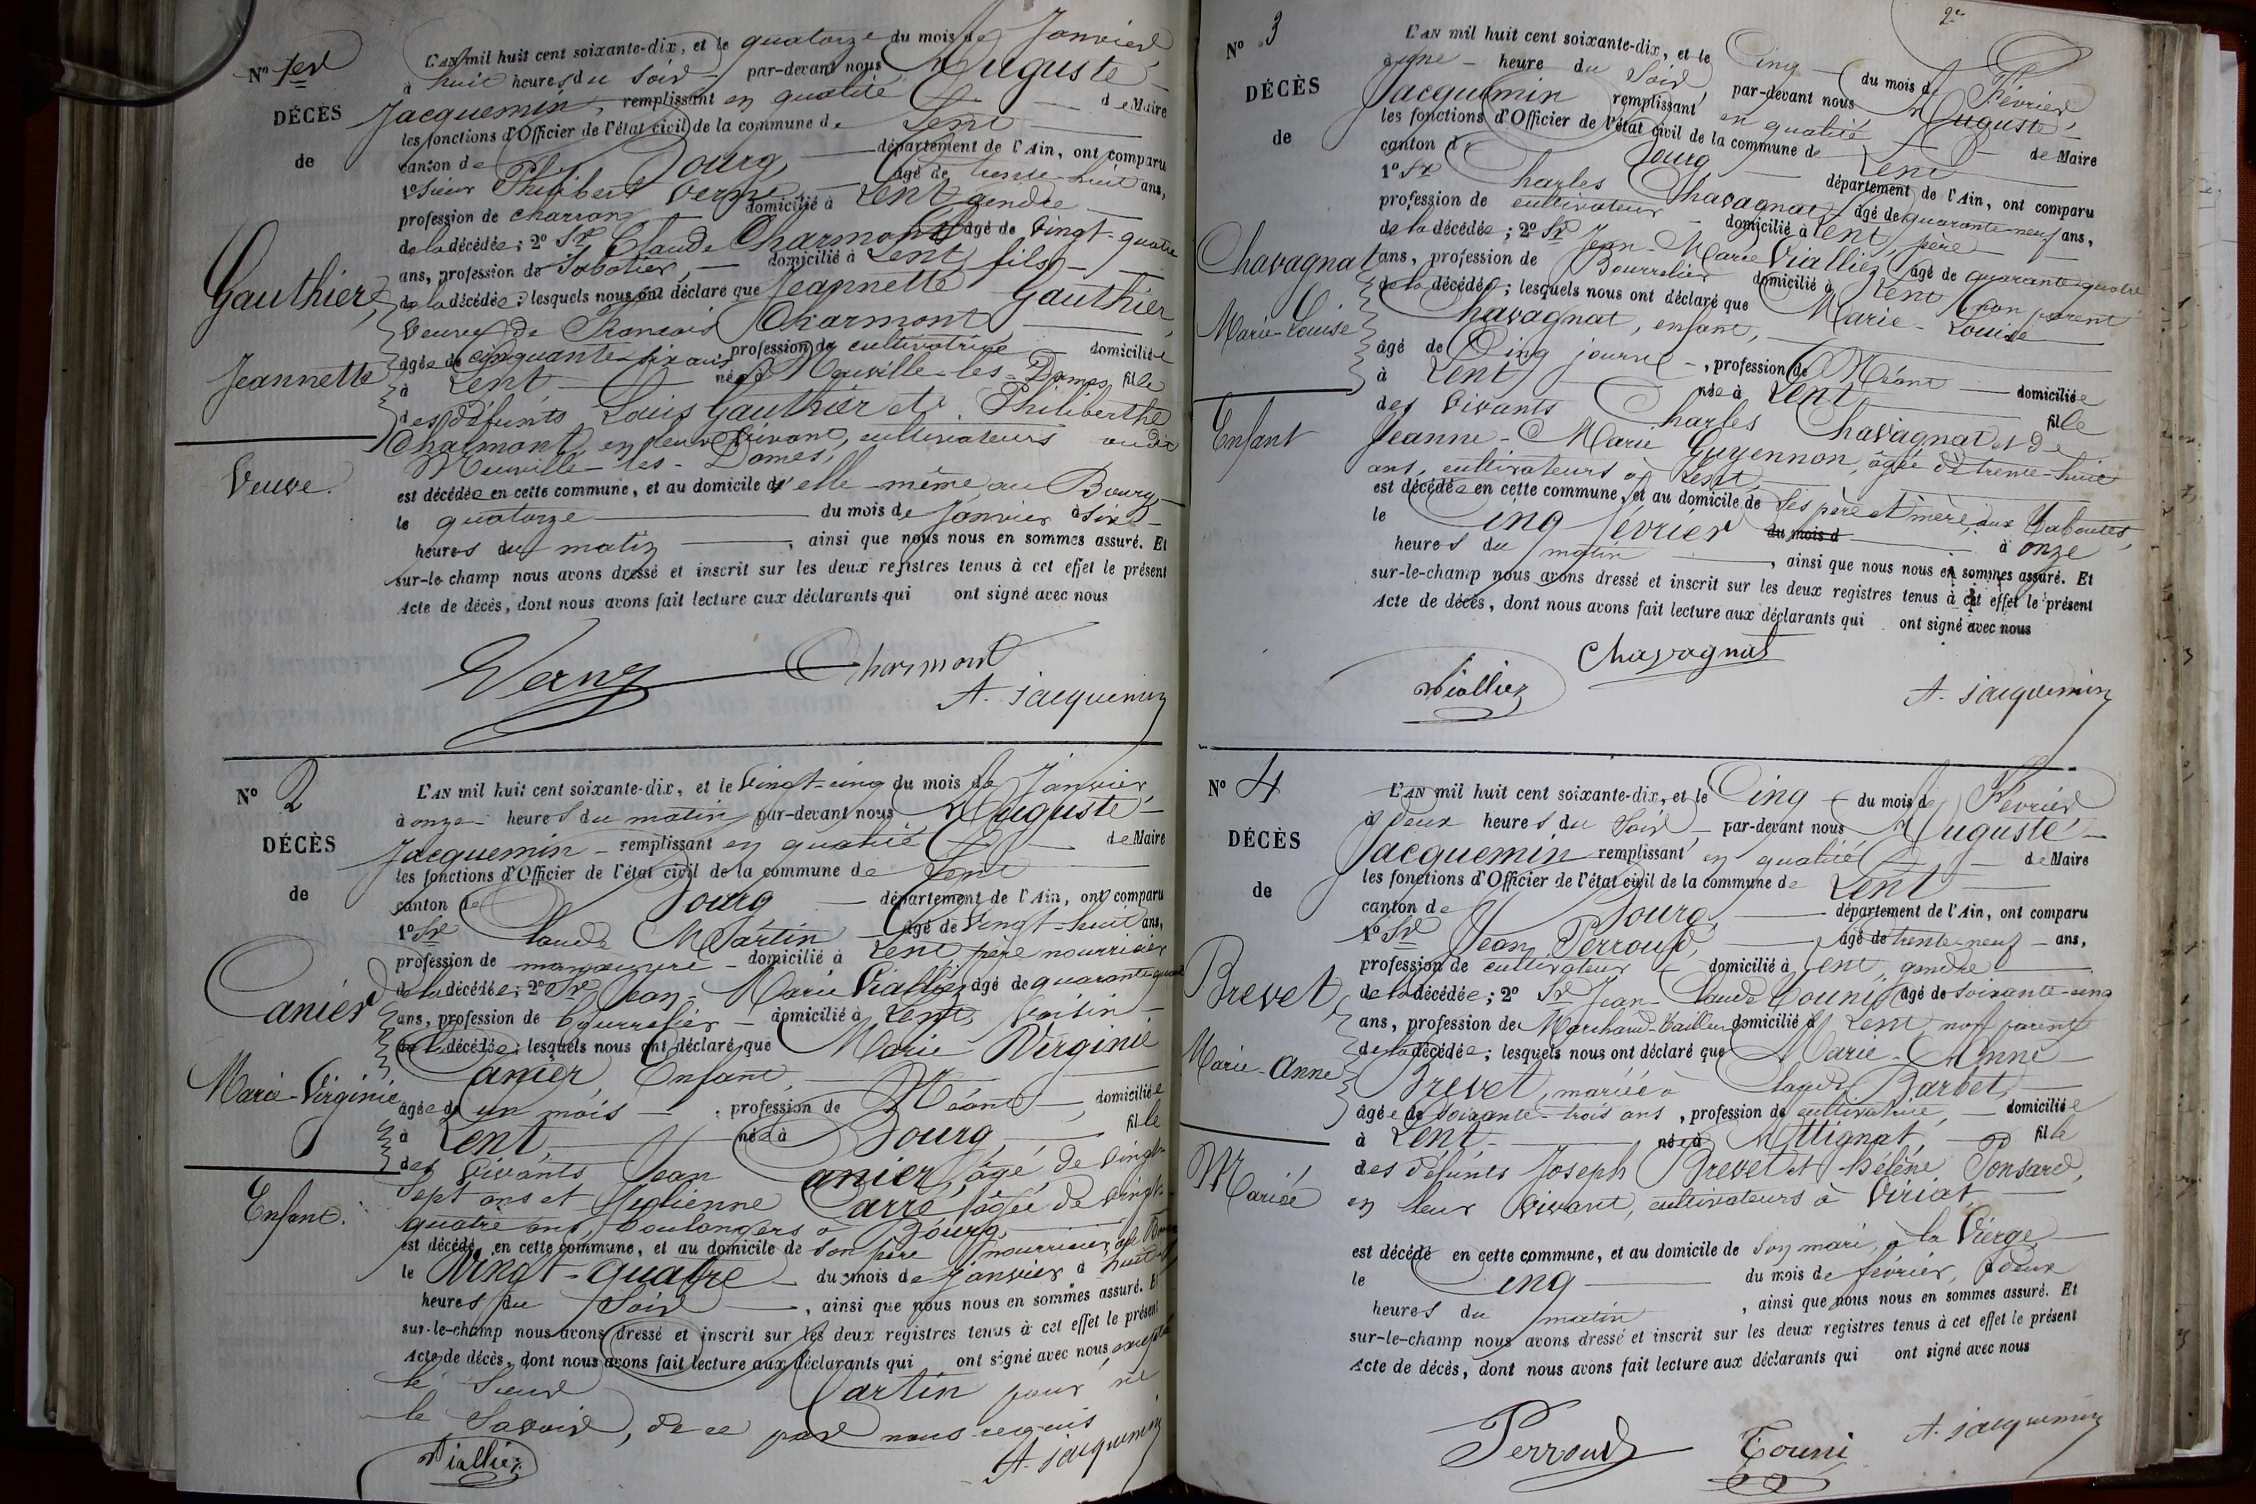 N° 1er
DÉCÈS
de
Gauthier,
Jeannette
Veuve.
L'AN mil huit cent soixante-dix, et le quatorze du mois de Janvier
à huit heures du soir par-devant nous Auguste
Jacquemin, remplissant en qualité de Maire
les fonctions d'Officier de l'état civil de la commune de Lent
canton de Bourg département de l'Ain, ont comparu
1° Sieur Philibert Verne âgé de trente-huit ans,
profession de charron domicilié à Lent gendre
de la décédée; 2° Sr Claude Charmont âgé de vingt-quatre
ans, profession de Sabotier, domicilié à Lent, fils
de la décédée; lesquels nous ont déclaré que Jeannette Gauthier,
Veuve de François Charmont
âgée de cinquante-six ans profession de cultivatrice domiciliée
à Lent née à Neuville-les-Dames, fille
des défunts Louis Gauthier et Philiberthe
Charmont, en leur vivant, cultivateurs audit
Neuville-les-Dames,
est décédée en cette commune, et au domicile d'elle-même au Bourg
le quatorze du mois de Janvier à six
heures du matin, ainsi que nous nous en sommes assuré. Et
sur-le-champ nous avons dressé et inscrit sur les deux registres tenus à cet effet le présent
Acte de décès, dont nous avons fait lecture aux déclarants qui ont signé avec nous
Charmont
A. Jacquemin
N° 2
DÉCÈS
de
Canier
Marie-Virginie
Enfant.
L'AN mil huit cent soixante-dix, et le vingt-cinq du mois de Janvier
à onze heures du matin par-devant nous Auguste
Jacquemin remplissant en qualité de Maire
les fonctions d'Officier de l'état civil de la commune de Lent
canton de Bourg département de l'Ain, ont comparu
1° Sr Claude Martin âgé de vingt-huit ans,
profession de manoeuvre domicilié à Lent, père nourricier
de la décédée; 2° Sr Jean-Marie Viallier âgé de quarante-quatre
ans, profession de bourrelier domicilié à Lent, voisin
de la décédée; lesquels nous ont déclaré que Marie Virginie
Canier, Enfant,
âgée de un mois, profession de Néant, domiciliée
à Lent, née à Bourg, fille
des vivants Jean Canier, âgé de vingt-
sept ans et Julienne Carré, âgée de vingt-
quatre ans, boulangers à Bourg,
est décédé en cette commune, et au domicile de son père nourricier,
le Vingt-quatre du mois de janvier à huit
heures du soir, ainsi que nous nous en sommes assuré. Et
sur-le-champ nous avons dressé et inscrit sur les deux registres tenus à cet effet le présent
Acte de décès, dont nous avons fait lecture aux déclarants qui ont signé avec nous, excepté
le Sieur Martin pour ne
le savoir, de ce par nous requis
Viallier
A. Jacquemin
2e
N° 3
DÉCÈS
de
Chavagnat
Marie-Louise
Enfant
L'AN mil huit cent soixante-dix, et le Cinq du mois de Février
à une heure du soir par-devant nous Auguste
Jacquemin remplissant en qualité de Maire
les fonctions d'Officier de l'état civil de la commune de Lent
canton de Bourg département de l'Ain, ont comparu
1° Sr Charles Chavagnat âgé de quarante-neuf ans,
profession de cultivateur domicilié à Lent, père
de la décédée; 2° Sr Jean-Marie Viallier, âgé de quarante-quatre
ans, profession de Bourrelier domicilié à Lent, non parent
de la décédée; lesquels nous ont déclaré que Marie-Louise
Chavagnat, enfant,
âgé de Cinq jours, profession de Néant domiciliée
à Lent née à Lent fille
des vivants Charles Chavagnat et de
Jeanne-Marie Guyennon, âgée de trente-huit
ans, cultivateurs à Lent,
est décédée en cette commune, et au domicile de ses père et mère, aux
le Cinq février du mois d à onze
heures du matin, ainsi que nous nous en sommes assuré. Et
sur-le-champ nous avons dressé et inscrit sur les deux registres tenus à cet effet le présent
Acte de décès, dont nous avons fait lecture aux déclarants qui ont signé avec nous
Chavagnat
Viallier
A. Jacquemin
N° 4
DÉCÈS
de
Brevet
Marie-Anne
Mariée
L'AN mil huit cent soixante-dix, et le Cinq du mois de Février
à deux heures du soir par-devant nous Auguste
Jacquemin remplissant en qualité de Maire
les fonctions d'Officier de l'état civil de la commune de Lent
canton de Bourg département de l'Ain, ont comparu
1° Sr Jean Perroud, âgé de trente-neuf ans,
profession de cultivateur domicilié à Lent, gendre
de la décédée; 2° Sr Jean-Claude Touni âgé de soixante-cinq
ans, profession de Marchand-tailleur domicilié à Lent non parent
de la décédée; lesquels nous ont déclaré que Marie-Anne
Brevet, mariée à Claude Barbet,
âgée de soixante-trois ans, profession de cultivatrice, domiciliée
à Lent née à Attignat, fille
des défunts Joseph Brevet et Hélène Ponsard,
en leur vivant, cultivateurs à Viriat
est décédé en cette commune, et au domicile de son mari, à la Vierge
le Cinq du mois de février, à deux
heures du matin, ainsi que nous nous en sommes assuré. Et
sur-le-champ nous avons dressé et inscrit sur les deux registres tenus à cet effet le présent
Acte de décès, dont nous avons fait lecture aux déclarants qui ont signé avec nous
Perroud
Touni
A. Jacquemin